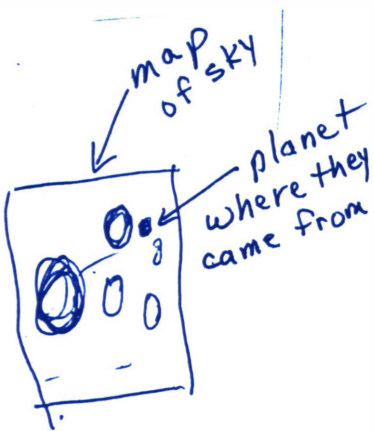 map
of sky
planet
where they
came from